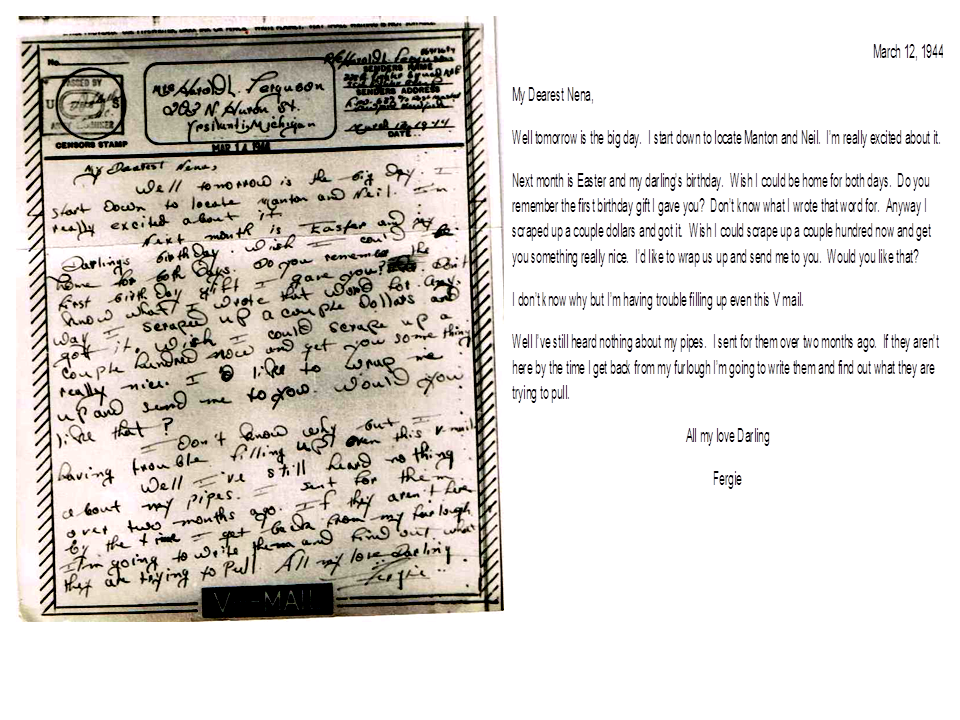 No.
PASSED BY
U S
ARMY EXAMINER
CENSORS STAMP
Mrs Harold L. Ferguson
202 N. Huron St.
Ypsilanti, Michigan
MAR 14 1944
Pfc Harold L. Ferguson
SENDERS NAME
SENDERS ADDRESS
March 12, 1944
DATE
My Dearest Nena,
Well tomorrow is the big day. I
start Down to locate Manton and Neil. I'm
really excited about it.
Next month is Easter and my
Darlings birthDay. Wish I could be
home for both Days. Do you remember the
first birthDay gift I gave you? Don't
know what I wrote that word for. Any
way I scraped up a couple Dollars and
got it. Wish I could scrape up a
couple hundred now and get you some thing
really nice. I'd like to wrap me
up and send me to you. Would you
like that?
I Don't know why but I'm
having trouble filling up even this V mail.
Well I've still heard nothing
about my pipes. I sent for them
over two months ago. If they aren't here
by the time I get back from my furlough
I'm going to write them and find out what
they are trying to pull. All my love Darling
Fergie
V-MAIL
March 12, 1944
My Dearest Nena,
Well tomorrow is the big day. I start down to locate Manton and Neil. I'm really excited about it.
Next month is Easter and my darling's birthday. Wish I could be home for both days. Do you
remember the first birthday gift I gave you? Don't know what I wrote that word for. Anyway I
scraped up a couple dollars and got it. Wish I could scrape up a couple hundred now and get
you something really nice. I'd like to wrap us up and send me to you. Would you like that?
I don't know why but I'm having trouble filling up even this V mail.
Well I've still heard nothing about my pipes. I sent for them over two months ago. If they aren't
here by the time I get back from my furlough I'm going to write them and find out what they are
trying to pull.
All my love Darling
Fergie